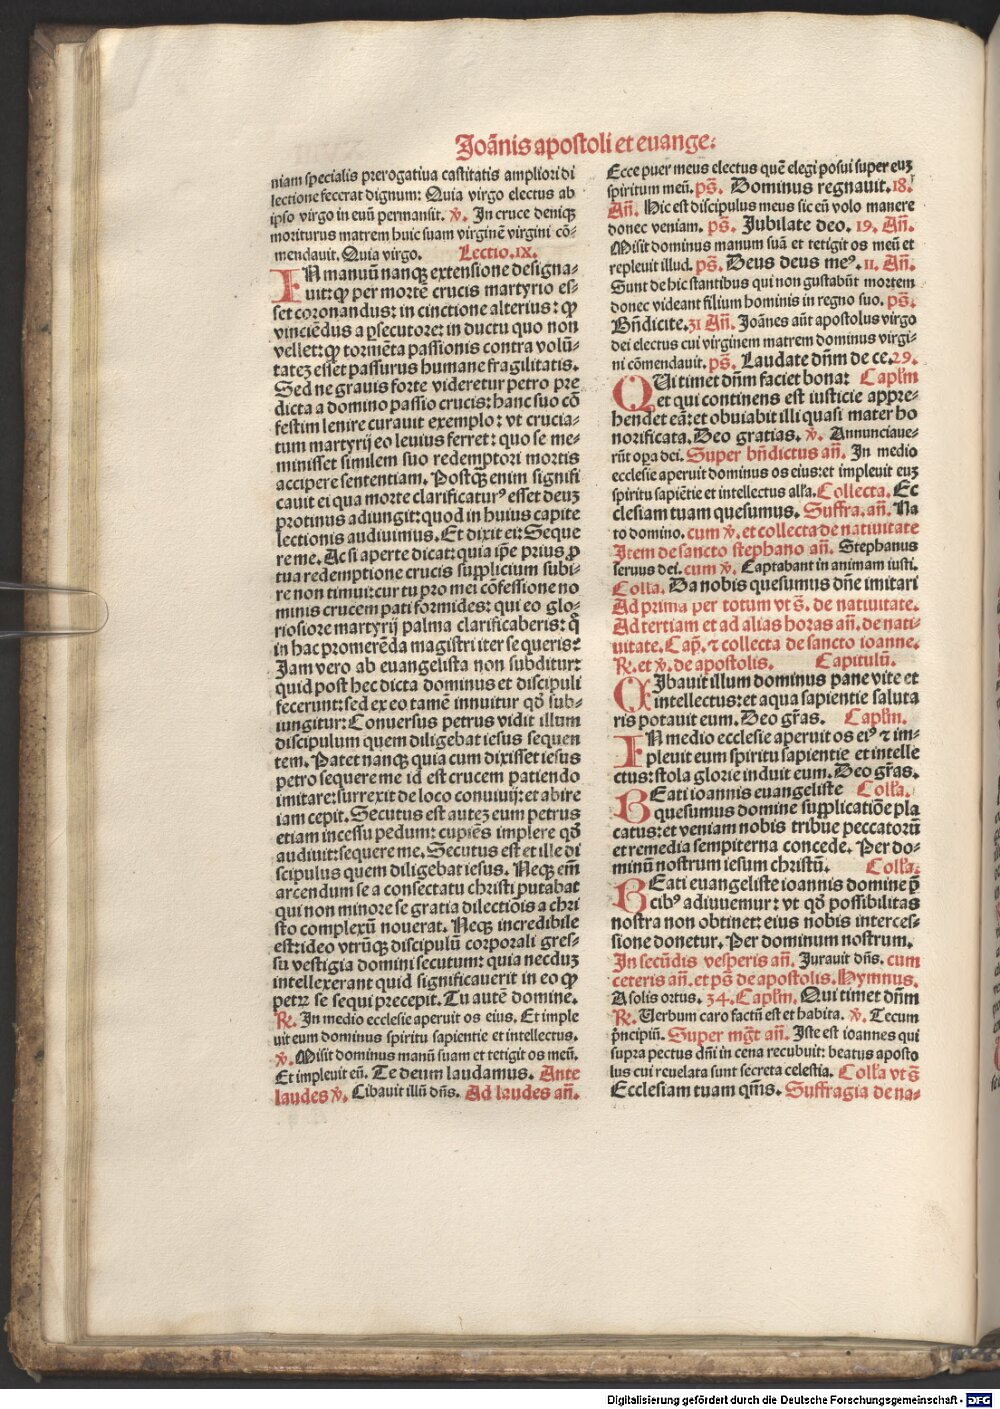 Joãnis apostoli et euange:
niam specialis prerogatiua castitatis ampliori di
lectione fecerat dignum: Quia virgo electus ab
ipso virgo in euũ permansit. ꝟ. In cruce deniqꝫ
moriturus matrem huic suam virginẽ virgini cõ-
mendauit. Quia virgo. Lectio.ix.
IN manuũ nanqꝫ extensione designa-
uit: ꝙ per mortẽ crucis martyrio es-
set coronandus: in cinctione alterius: ꝙ
vinciẽdus a ꝑsecutore: in ductu quo non
vellet: ꝙ tormẽta passionis contra volũ-
tateꝫ esset passurus humane fragilitatis.
Sed ne grauis forte videretur petro pre
dicta a domino passio crucis: hanc suo cõ
festim lenire curauit exemplo: vt crucia-
tum martyrij eo leuius ferret: quo se me-
minisset similem suo redemptori mortis
accipere sententiam. Postqꝫ enim signifi
cauit ei qua morte clarificaturꝰ esset deuꝫ
protinus adiungit: quod in huius capite
lectionis audiuimus. Et dixit ei: Seque
re me. Ac si aperte dicat: quia ip̃e prius ꝓ
tua redemptione crucis supplicium subi-
re non timui: cur tu pro mei cõfessione no
minis crucem pati formides: qui eo glo-
riosiore martyrij palma clarificaberis: q̃
in hac promerẽda magistri iter sequeris:
Jam vero ab euangelista non subditur:
quid post hec dicta dominus et discipuli
fecerunt: sed ex eo tamẽ innuitur qď sub-
iungitur: Conuersus petrus vidit illum
discipulum quem diligebat iesus sequen
tem. Patet nanqꝫ quia cum dixisset iesus
petro sequere me id est crucem patiendo
imitare: surrexit de loco conuiuij: et abire
iam cepit. Secutus est auteꝫ eum petrus
etiam incessu pedum: cupiẽs implere qď
audiuit: sequere me. Secutus est et ille di
scipulus quem diligebat iesus. Neqꝫ em̃
arcendum se a consectatu christi putabat
qui non minore se gratia dilectiõis a chri
sto complexũ nouerat. Neqꝫ incredibile
est: ideo vtrũqꝫ discipulũ corporali gres-
su vestigia domini secutum: quia necduꝫ
intellexerant quid significauerit in eo ꝙ
petrꝫ se sequi precepit. Tu autẽ domine.
℞. In medio ecclesie aperuit os eius. Et imple
uit eum dominus spiritu sapientie et intellectus.
ꝟ. Misit dominus manũ suam et tetigit os meũ.
Et impleuit eũ. Te deum laudamus. Ante
laudes ꝟ. Cibauit illũ dñs. Ad laudes añ.
Ecce puer meus electus quẽ elegi posui super euꝫ
spiritum meũ. pš. Dominus regnauit. 18.
Añ. Hic est discipulus meus sic eũ volo manere
donec veniam. pš. Jubilate deo. 19. Añ.
Misit dominus manum suã et tetigit os meũ et
repleuit illud. pš. Deus deus meꝰ. 11. Añ.
Sunt de hic stantibus qui non gustabũt mortem
donec videant filium hominis in regno suo. pš.
Bñdicite. 31 Añ. Joãnes aũt apostolus virgo
dei electus cui virginem matrem dominus virgi-
ni cõmendauit. pš. Laudate dñm de ce. 29.
QUi timet dñm faciet bona: Capl̃m
et qui continens est iusticie appre-
hendet eã: et obuiabit illi quasi mater ho
norificata. Deo gratias. ꝟ. Annunciaue-
rũt oꝑa dei. Super bñdictus añ. In medio
ecclesie aperuit dominus os eius: et impleuit euꝫ
spiritu sapiẽtie et intellectus all̃a. Collecta. Ec
clesiam tuam quesumus. Suffra. añ. Na
to domino. cum ꝟ. et collecta de natiuitate
Item de sancto stephano añ. Stephanus
seruus dei. cum ꝟ. Captabant in animam iusti.
Colla. Da nobis quesumus dñe imitari
Ad prima per totum vt š. de natiuitate.
Ad tertiam et ad alias horas añ. de nati-
uitate. Cap̃. ⁊ collecta de sancto ioanne.
℞. et ꝟ. de apostolis. Capitulũ.
CIbauit illum dominus pane vite et
intellectus: et aqua sapientie saluta
ris potauit eum. Deo gr̃as. Capl̃m.
IN medio ecclesie aperuit os eiꝰ ⁊ im-
pleuit eum spiritu sapientie et intelle
ctus: stola glorie induit eum. Deo gr̃as.
BEati ioannis euangeliste Coll̃a.
quesumus domine supplicatiõe pla
catus: et veniam nobis tribue peccatorũ
et remedia sempiterna concede. Per do-
minũ nostrum iesum christũ. Coll̃a.
BEati euangeliste ioannis domine p̃
cibꝰ adiuuemur: vt qď possibilitas
nostra non obtinet: eius nobis interces-
sione donetur. Per dominum nostrum.
In secũdis vesperis añ. Jurauit dñs. cum
ceteris añ. et pš de apostolis. Hymnus.
A solis ortus. 34. Capl̃m. Qui timet dñm
℞. Uerbum caro factũ est et habita. ꝟ. Tecum
p̃ncipiũ. Super mg̃t añ. Iste est ioannes qui
supra pectus dñi in cena recubuit: beatus aposto
lus cui reuelata sunt secreta celestia. Coll̃a vt š
Ecclesiam tuam qm̃s. Suffragia de na-
Digitalisierung gefördert durch die Deutsche Forschungsgemeinschaft - DFG